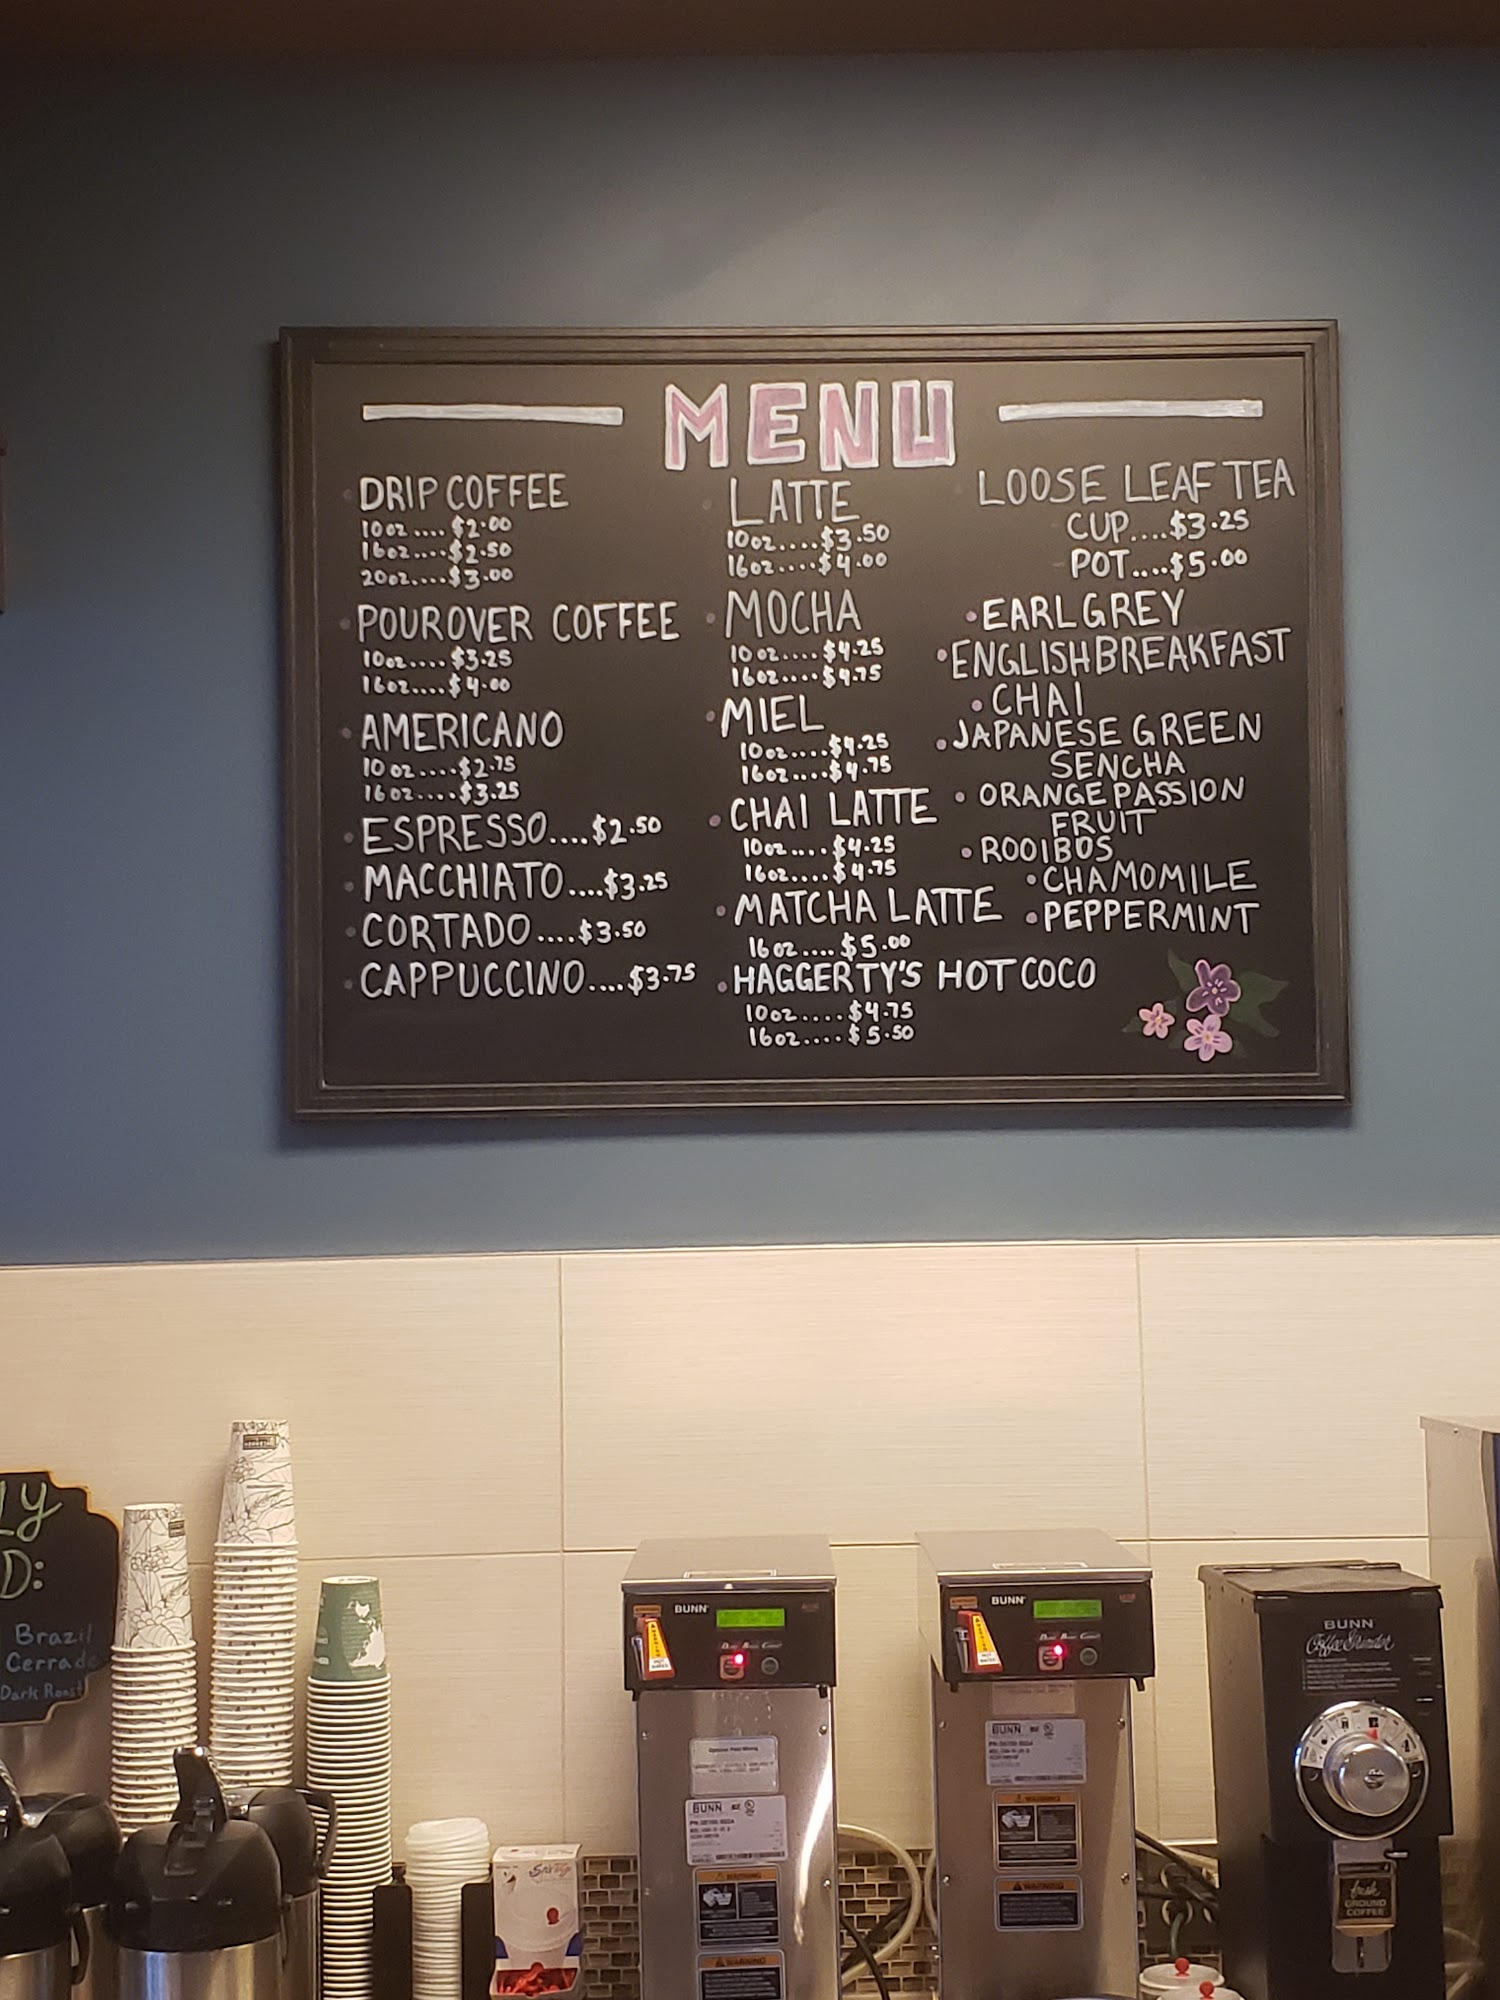 MENU
DRIP COFFEE
10oz .... $2.00
16oz....$2.50
20oz....$3.00
POUROVER COFFEE
10oz....$3.25
16oz....$4.00
AMERICANO
10oz....$2.75
16oz....$3.25
ESPRESSO....$2.50
MACCHIATO....$3.25
CORTADO....$3.50
CAPPUCCINO....$3.75
LATTE
10oz....$3.50
16oz....$4.00
MOCHA
10oz....$4.25
16oz....$4.75
MIEL
10oz....$4.25
16oz....$4.75
CHAI LATTE
10oz....$4.25
16oz....$4.75
MATCHA LATTE
16oz....$5.00
HAGGERTY'S HOT COCO
10oz....$4.75
16oz....$5.50
LOOSE LEAF TEA
CUP....$3.25
POT....$5.00
EARL GREY
ENGLISH BREAKFAST
CHAI
JAPANESE GREEN
SENCHA
ORANGE PASSION
FRUIT
ROOIBOS
CHAMOMILE
PEPPERMINT
LY
D:
Brazil
Cerrado
Dark Roast
BUNN
BUNN
BUNN
Coffee Grinder
BUNN
WARNING
WARNING
BUNN
WARNING
WARNING
fresh
GROUND
COFFEE